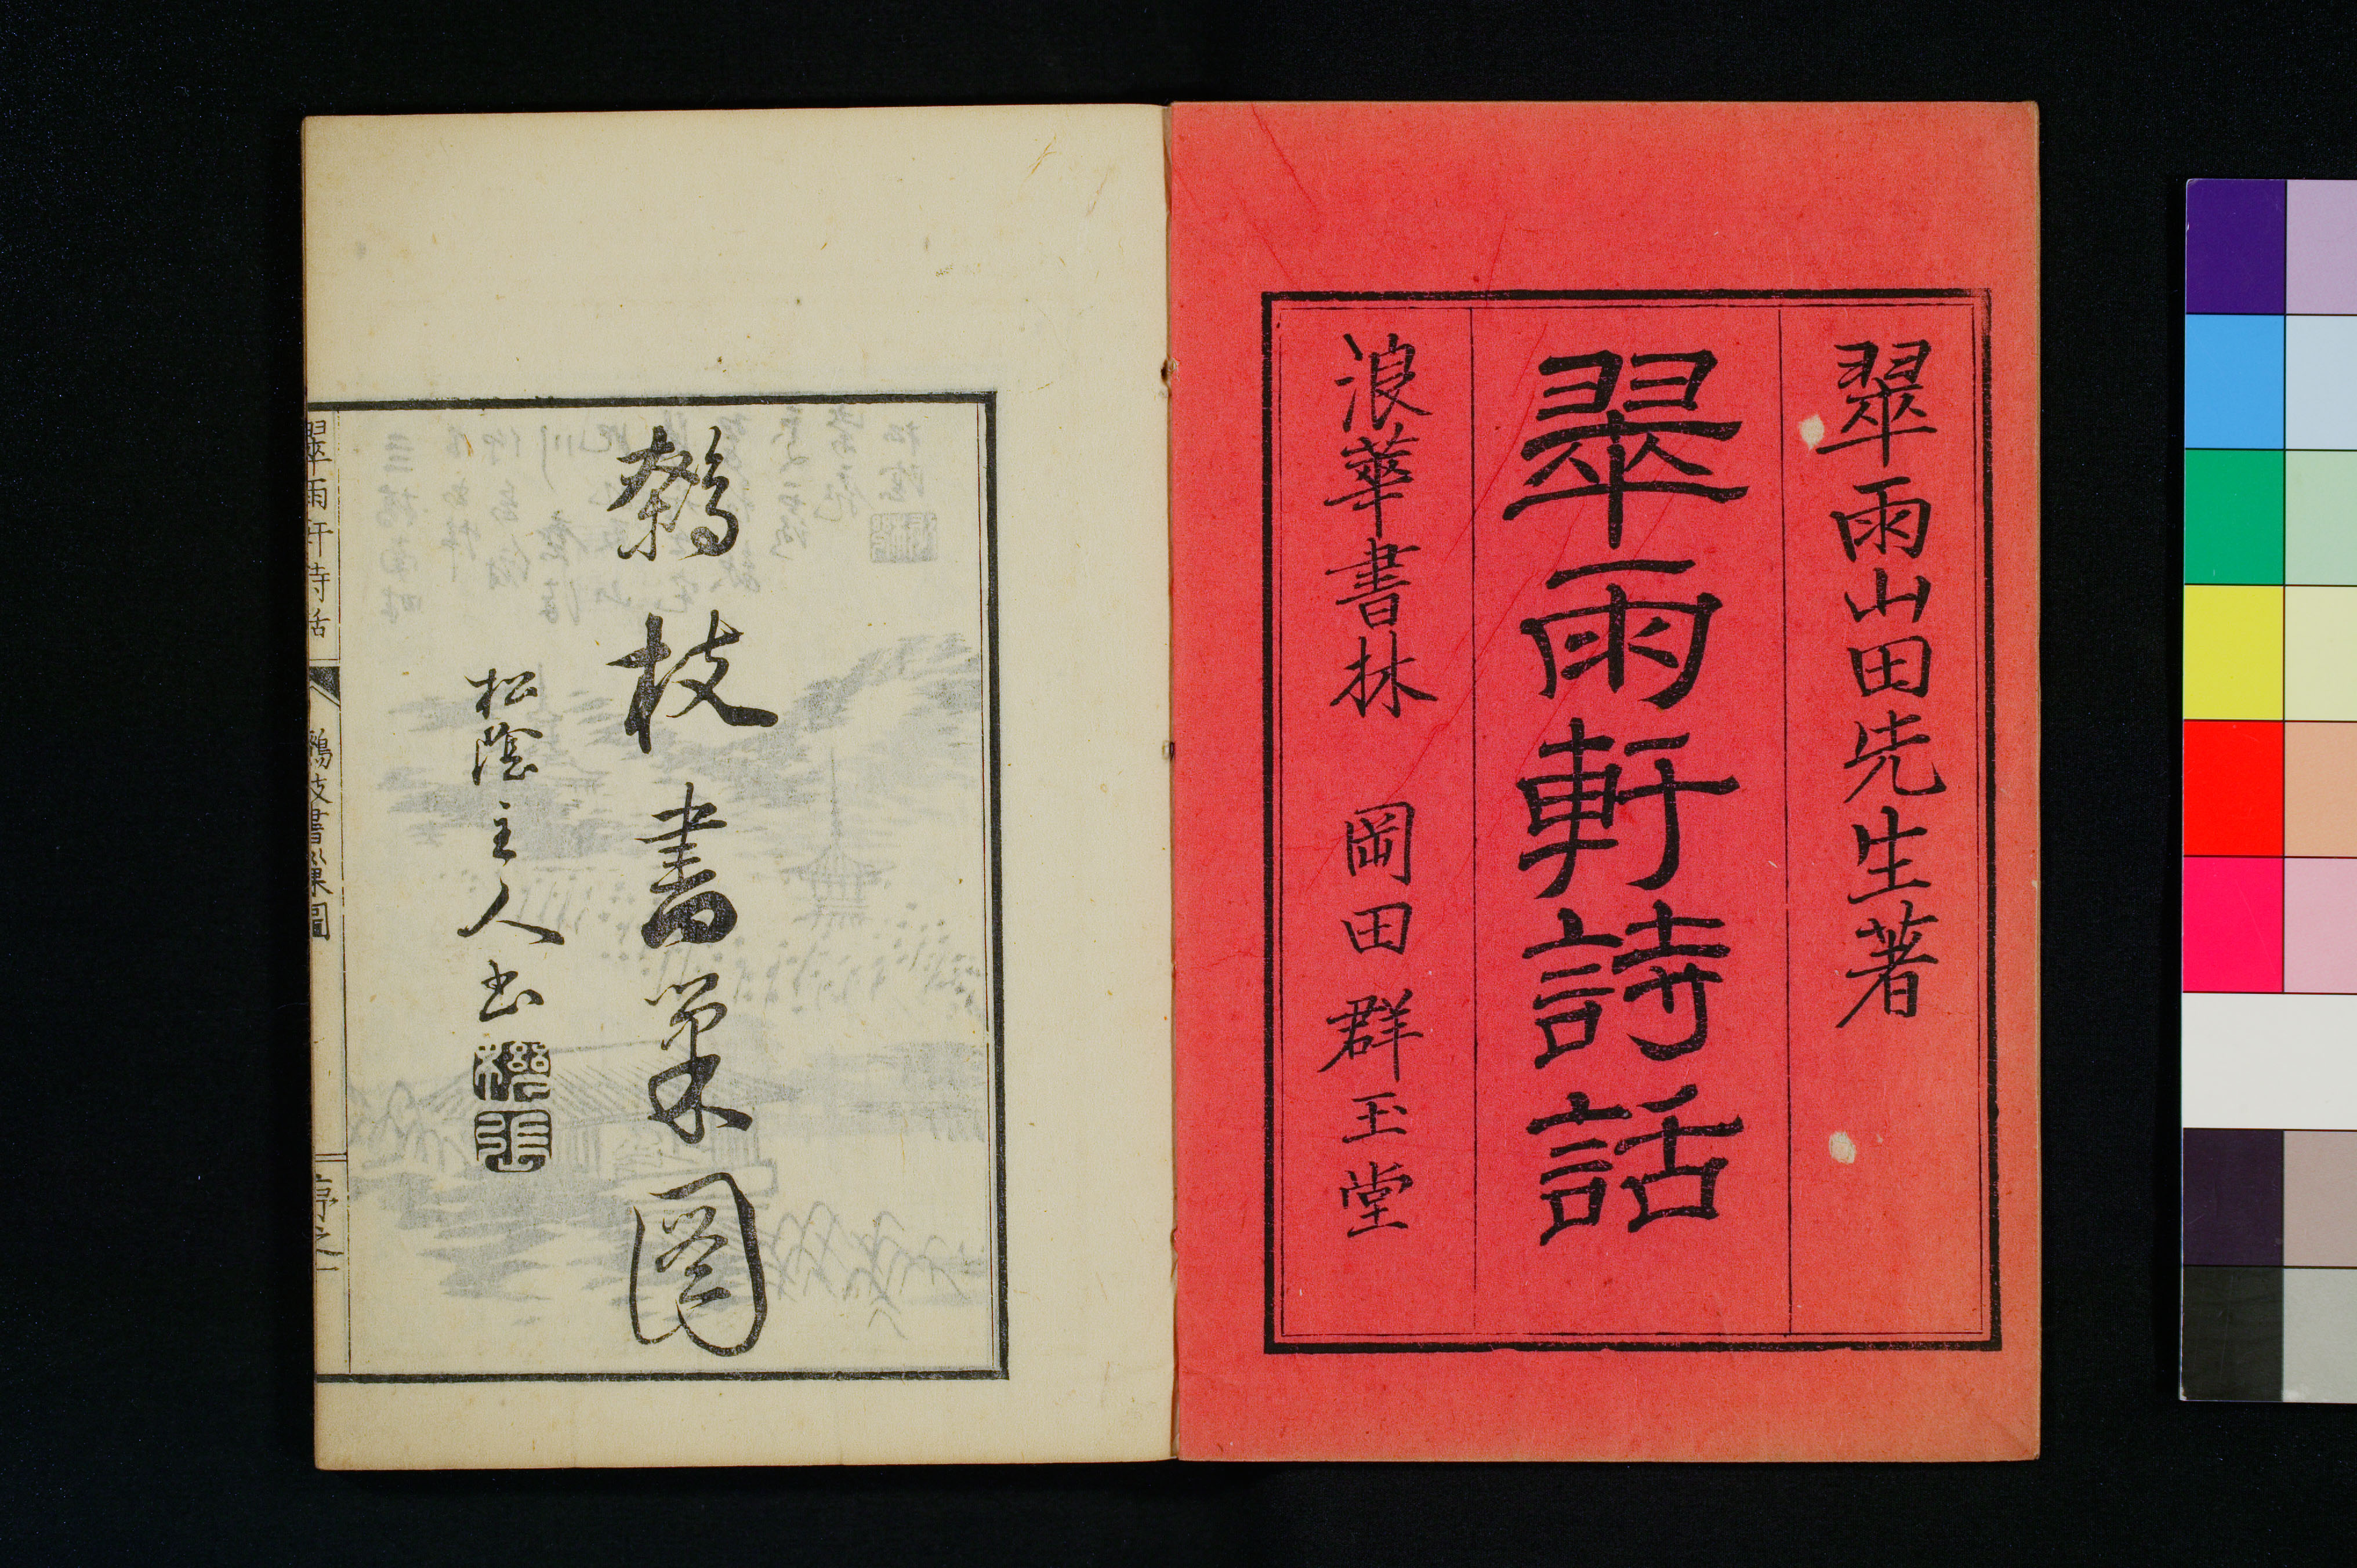 翠雨山田先生著
翠雨軒詩話
浪華書林 岡田群玉堂
鷦枝書巢圖
松蔭主人書
翠雨軒詩話 鷦枝書巢圖 序之一